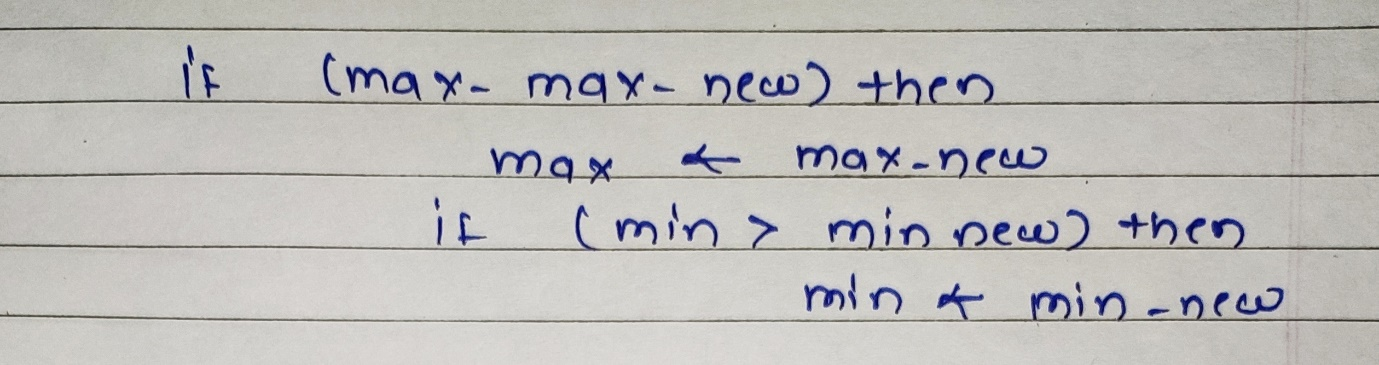 if (max- max- new) then
max ← max-new
if (min > min new) then
min ← min-new